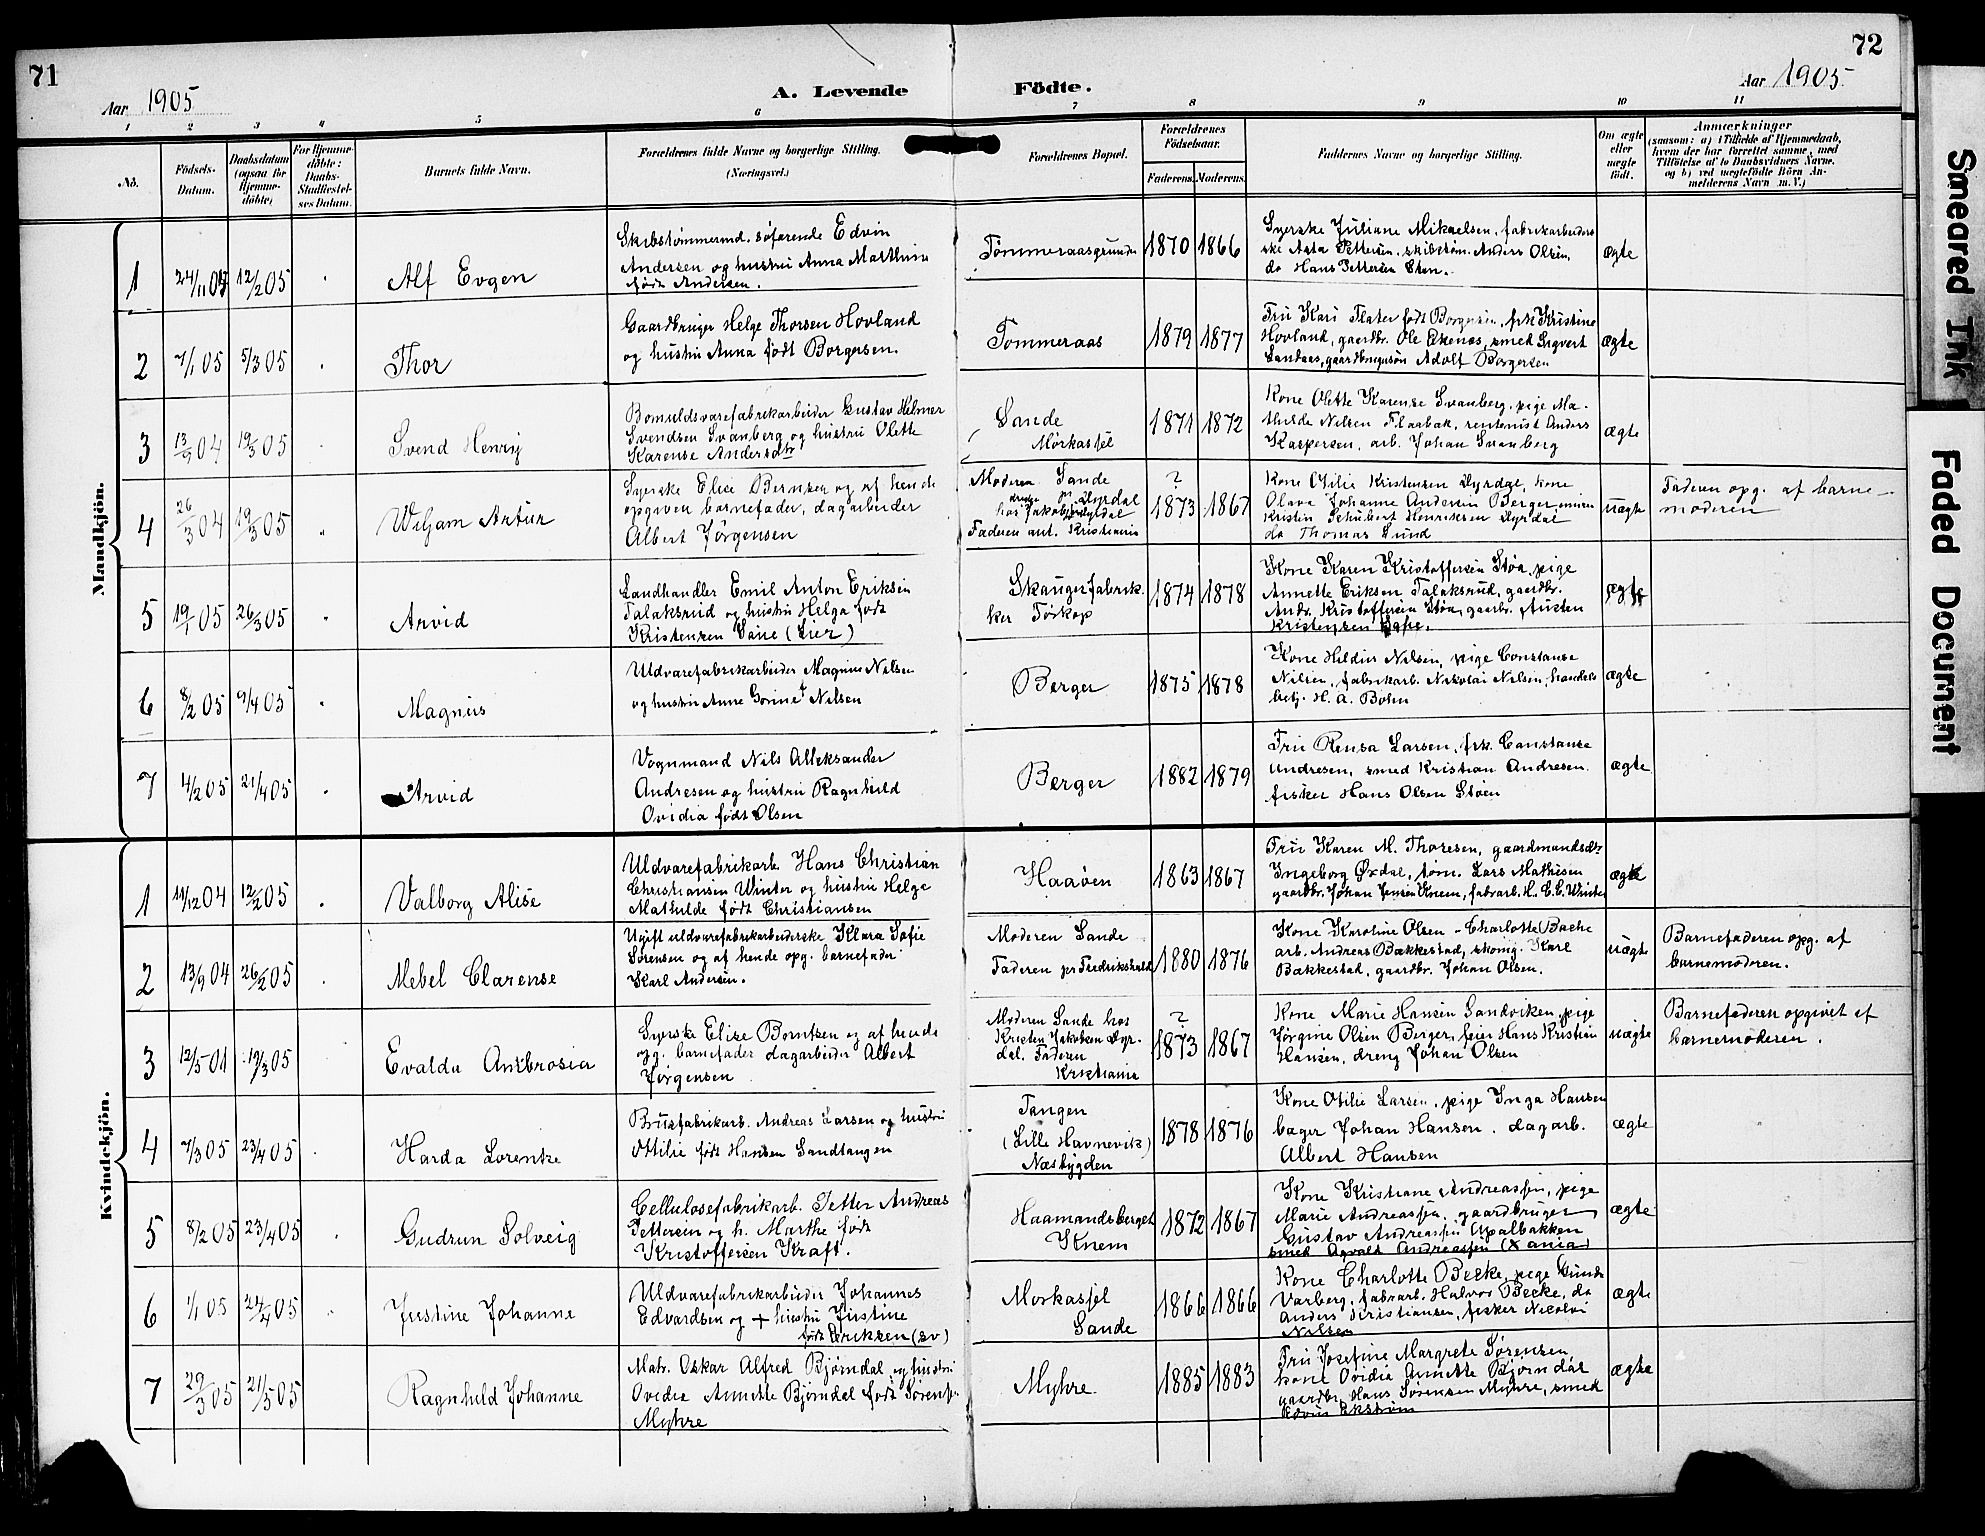 71
72
Aar 1905
A. Levende Födte.
Aar 1905
1 2 3 4 5 6 7 8 9 10 11
No.
Födsels-
Datum.
Daabsdatum
(ogsaa for
Hjemme-
döbte)
For Hjemme-
döbte:
Daabs-
Stadfæstel-
ses Datum.
Barnets fulde Navn.
Forældrenes fulde Navne og borgerlige Stilling.
(Næringsvei.)
Forældrenes Bopæl.
Forældrenes
Födselsaar.
Faderens. Moderens.
Faddernes Navne og borgerlige Stilling.
Om ægte
eller
uægte
født.
Anmærkninger
(saasom: a) i Tilfælde af Hjemmedaab,
hvem der har forrettet samme, med
Tilföielse af to Daabsvidners Navne.
og b) ved uægtefödte Börn An-
melderens Navn m. V.)
Mandkjön.
1 24/11 04 12/2 05 Alf Evgen
Skibstømmermd. søfarende Edvin
Andersen og hustru Anna Matthin
født Andersen.
Tømmeraasgrunden 1870 1866
Syerske Juliane Mikaelsen, fabrikarbeider-
ske Asta Pettersen, skibstøm. Anders Olsen,
do Hans Pettersen
ægte
2 7/1 05 5/3 05 Thor
Gaardbruger Helge Thorsen Hovland
og hustru Anna født Borgersen.
Tømmeraas 1879 1877
Fru Kari Flater født Borgersen, frk Kristine
Hovland, gaardbr. Ole Ekenæs, smed Sigvert
Sandaas, gaardbrugersøn Adolf Borgersen
ægte
3 13/9 04 19/3 05 Svend Henry
Bomuldsvarefabrikarbeider Gustav Helmer
Svendsen Svanberg og hustru Olette
Karense Andersdtr
Sande
Mørkassjel 1871 1872
Kone Olette Karense Svanberg, pige Ma-
thilde Nilsen Flaabak, rentenist Anders
Kaspersen, arb. Johan Svanberg
ægte
4 26/3 04 19/3 05 Wiljam Artur
Syerske Elise Berntzen og af hende
opgiven barnefader, dagarbeider
Albert Jørgensen
Moderen Sande
hos Jakobsen Dyrdal
Faderen ant. Kristiania
? 1873 1867
Kone Otilie Kristensen Dyrdal, kone
Olava Johanne Andersen Berger
Kristin Schubert Henriksen Dyrdal
do Thomas Lund
uægte
Faderen opg. af barne-
moderen
5 19/1 05 26/3 05 Arvid
Landhandler Emil Anton Eriksen
Talaksrud og hustru Helga født
Kristensen (Lier)
Skaugerfabrik-
ker Torkop 1874 1878
Kone Karen Kristoffersen Støa, pige
Annette Eriksen Talaksrud, gaardbr.
Andr. Kristoffersen Støa, gaardbr. Austen
Kristensen
ægte
6 8/2 05 9/4 05 Magnus
Uldvarefabrikarbeider Magnus Nilsen
og hustru Anne Gorine f Nilsen
Berger 1875 1878
Kone Hildur Nilsen, pige Constanse
Nilsen, fabrikarb. Nikolai Nilsen, handels
betj. H. A. Bolin
ægte
7 4/2 05 21/4 05 Arvid
Vognmand Nils Alleksander
Andresen og hustru Ragnhild
Ovidia født Olsen
Berger 1882 1879
Fru Rensa Larsen, frk. Constanse
Andresen, smed Kristian Andresen
fisker Hans Olsen Støen
ægte
Kvindekjön.
1 11/12 04 12/2 05 Valborg Alise
Uldvarefabrikarb. Hans Christian
Christiansen Winter og hustru Helge
Mathilde født Christiansen
Haaøen 1863 1867
Fru Karen M. Thoresen, gaardmandsdtr
Ingeborg Ørdal, tøm. Lars Mathisen
gaardbr. Johan Jensen Knem, fabarb. H. C. C. Winter
ægte
2 13/9 04 26/2 05 Mebel Clarense
Ugift uldvarefabrikarbeiderske Klara Sofie
Sørensen og af hende opg. barnefader
Karl Andersen.
Moderen Sande
Faderen pr Fredrikshald 1880 1876
Kone Karoline Olsen - Charlotte Bache
arb. Andreas Bækkestad, skomg. Karl
Bækkestad, gaardbr. Johan Olsen.
uægte
Barnefaderen opg. af
barnemoderen.
3 12/5 01 19/3 05 Evalda Ambrosia
Syerske Elise Berntzen og af hende
opg. barnefader dagarbeider Albert
Jørgensen
Moderen Sande hos
Kristen Jakobsen Dyr-
dal. Faderen
Kristiania
? 1873 1867
Kone Marie Hansen Sandviken, pige
Jørgine Olsen Berger, feier Hans Kristian
Hansen, dreng Johan Olsen
uægte
Barnefaderen opgivet af
barnemoderen.
4 7/3 05 23/4 05 Harda Lorentze
Brusfabrikarb. Andreas Larsen og hustru
Ottilie født Hansen Sandtangen
Tangen
(Lille Havnevik)
Næsbygden 1878 1876
Kone Otilie Larsen, pige Inga Hansen
bager Johan Hansen, dagarb.
Albert Hansen
ægte
5 8/2 05 23/4 05 Gudrun Solveig
Cellulosefabrikarb. Petter Andreas
Pettersen og h. Marthe født
Kristoffersen Kraft.
Haamandsberget
Knem 1872 1867
Kone Kristiane Andreassen, pige
Marie Andreassen, gaardbruger
Gustav Andreassen Opalbakken
smed Asvald Andreassen (Xania)
ægte
6 1/1 05 24/4 05 Justine Johanne
Uldvarefabrikarbeider Johannes
Edvardsen og + hustru Justine
født Eriksen (sv)
Morkassjel
Sande 1866 1866
Kone Charlotte Becke, pige
Varberg, fabarb. Halvor Becke, do
Anders Kristiansen, fisker Nicolai
Nilsen
ægte
7 29/3 05 21/5 05 Ragnhild Johanne
Matr. Oskar Alfred Bjørndal og hustru
Ovidia Annette Bjørndal født Sørensen
Myhre
Myhre. 1885 1883
Fru Josefine Margrete Sørensen,
kone Ovidia Annette Bjørndal
gaardbr. Hans Sørensen Myhre, smed
Edvin Ekstrøm
ægte
Smeared Ink
Faded Document